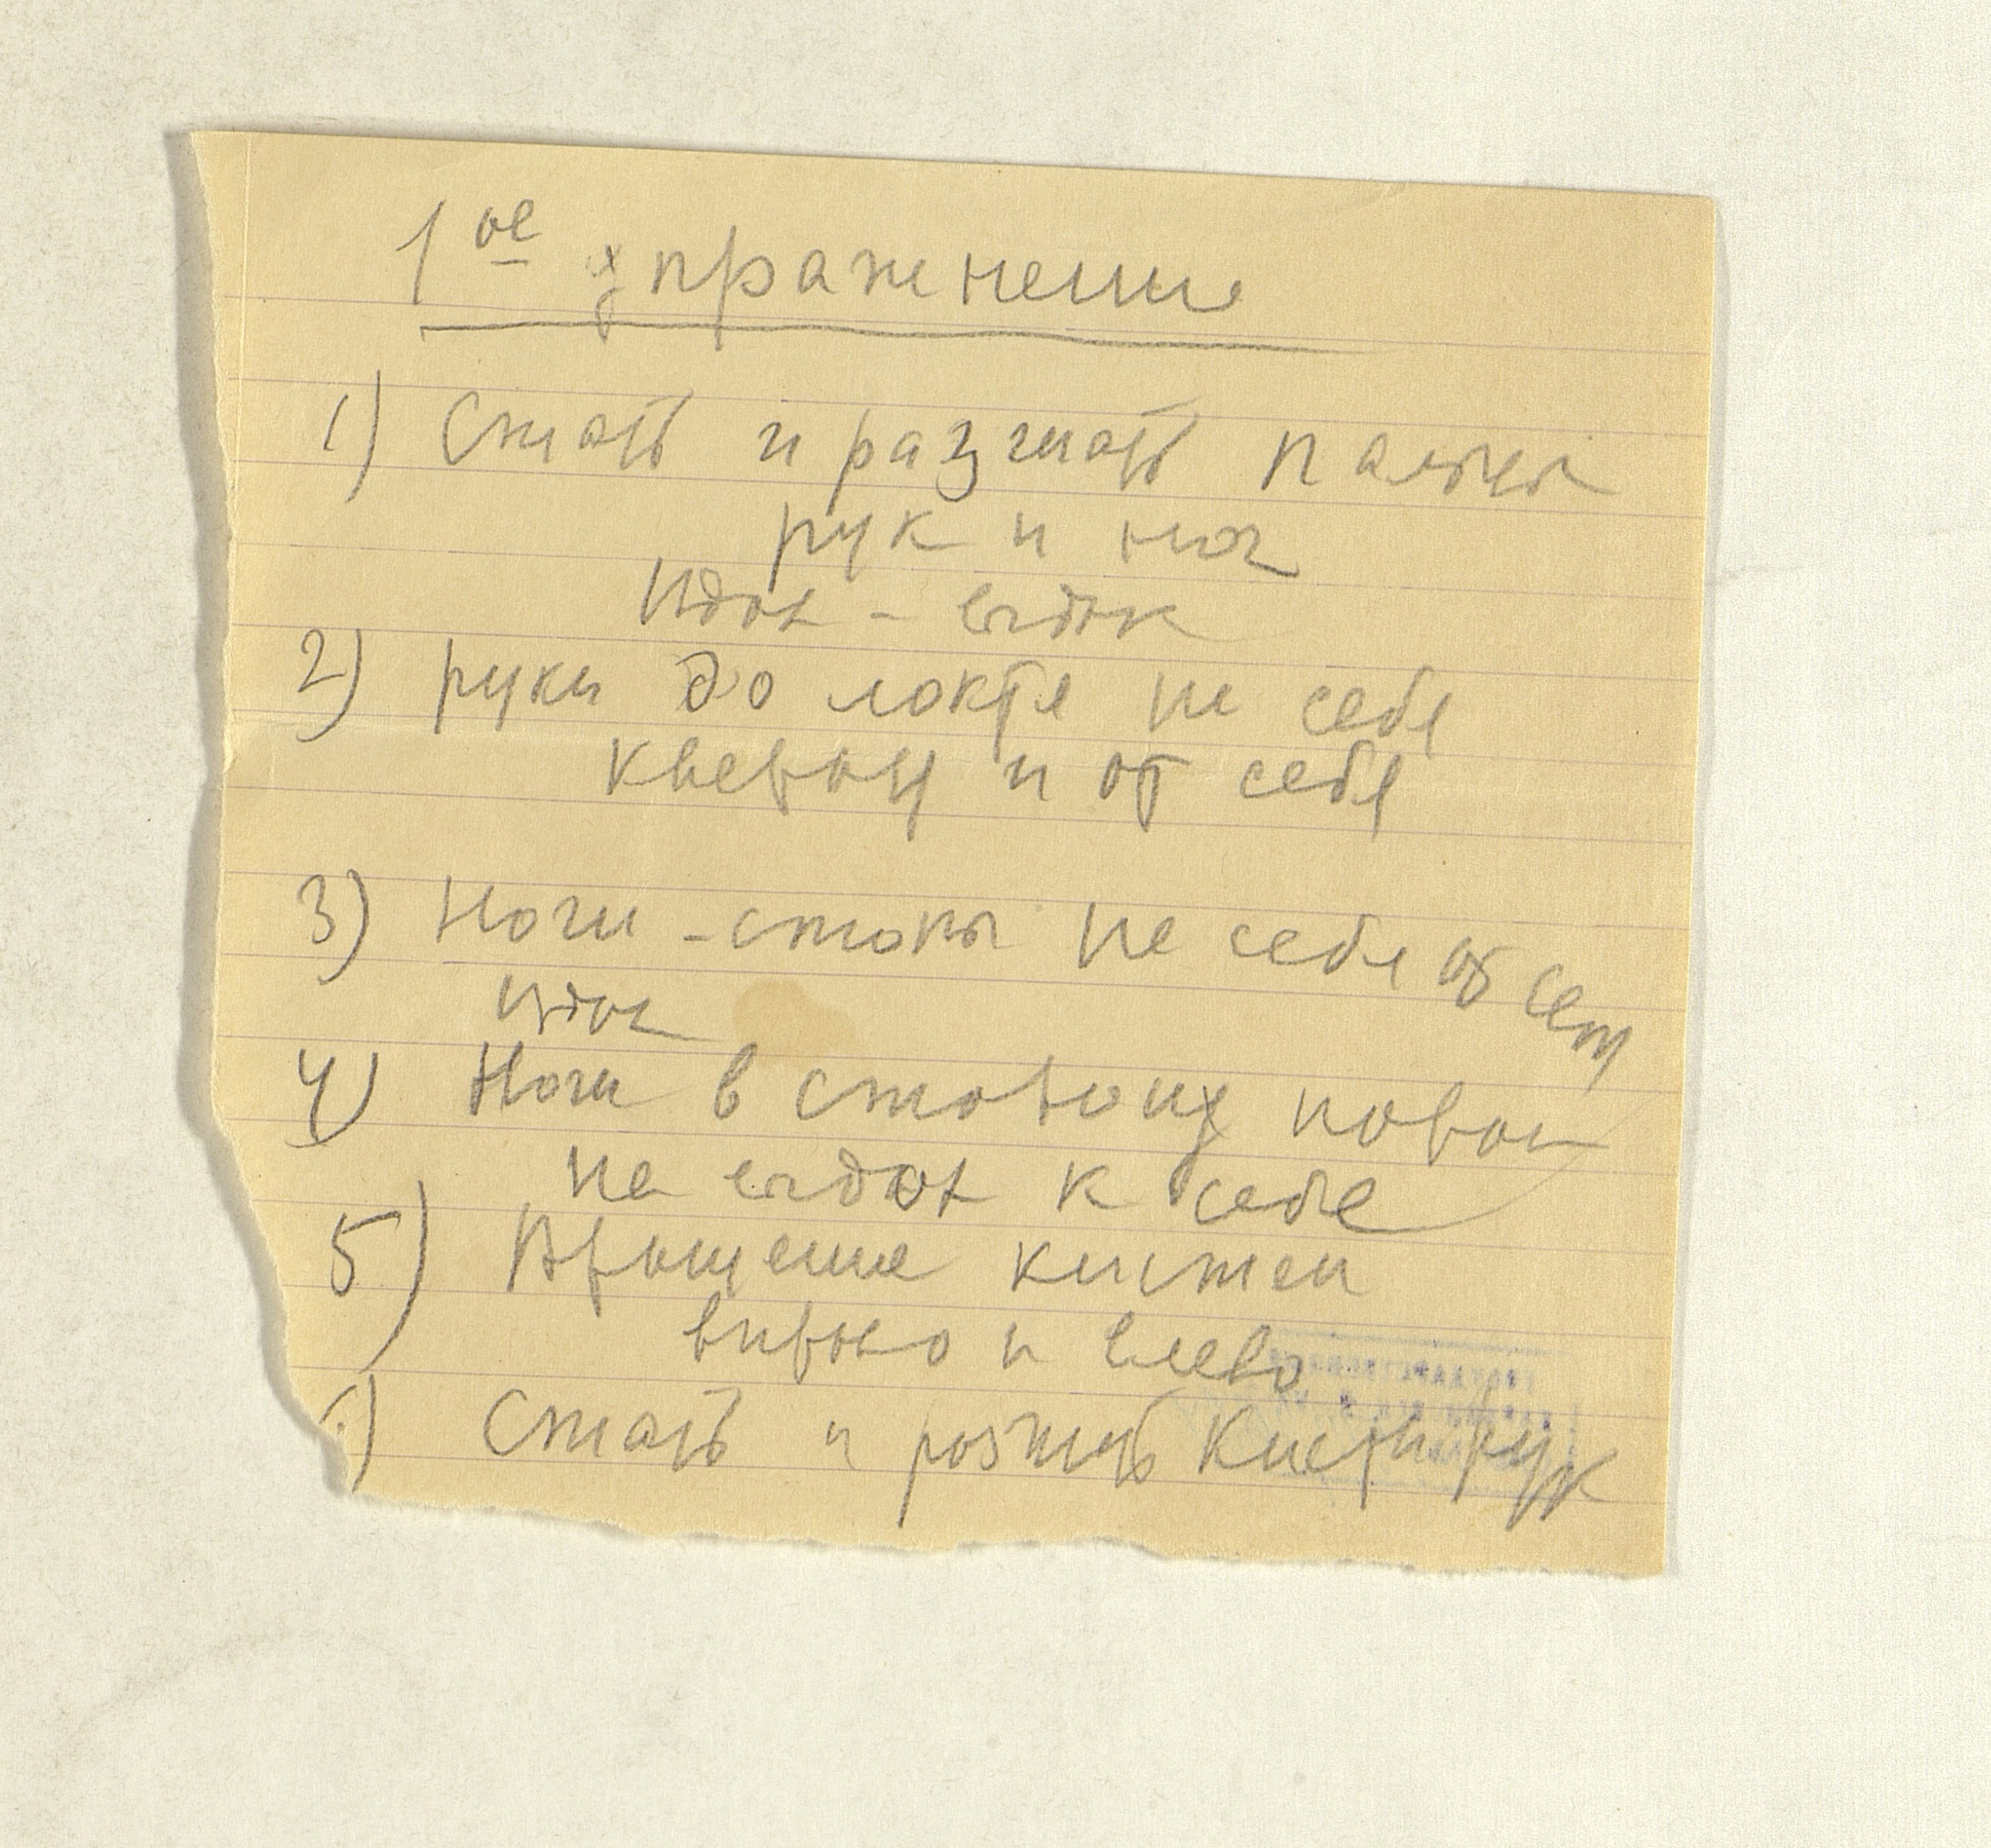 1ое упражнение
1) Сжать и разжать пальцы
рук и ног
Вдох – выдох
2) руки до локтя на себя
кверху и от себя
3) Ноги – стопы на себя от себя
вдох
4) Ноги в сторону
на выдох к себе
5) Вращение кистей
вправо и влево
) Сжать и разжать кисти рук